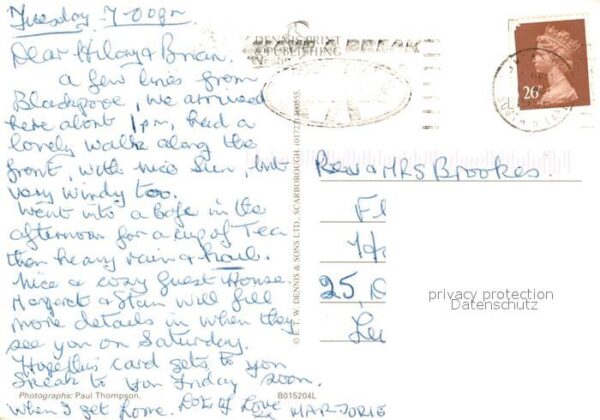 Tuesday 7-00pm
Dear Hilary & Brian.
a few lines from
Blackpool, we arrived
here about 1pm, had a
lovely walk along the
front, with nice Sun, but
very windy too.
Went into a Cafe in the
afternoon for a cup of Tea
then heavy rain & hail.
Nice & cosy Guest House.
Margaret & Stan will fill
more details in when they
see you on Saturday.
Hope this card gets to you
soon.
Speak to you Friday
Photographs: Paul Thompson.
B015204L
when I get home. Lots of Love
MARJORIE
DENNIS PRINT
& PUBLISHING
BREAK
© E. T. W. DENNIS & SONS LTD., SCARBOROUGH (01723) 500555.
26P
Rev & MRS Brookes.
Fl
25, 
privacy protection
Datenschutz